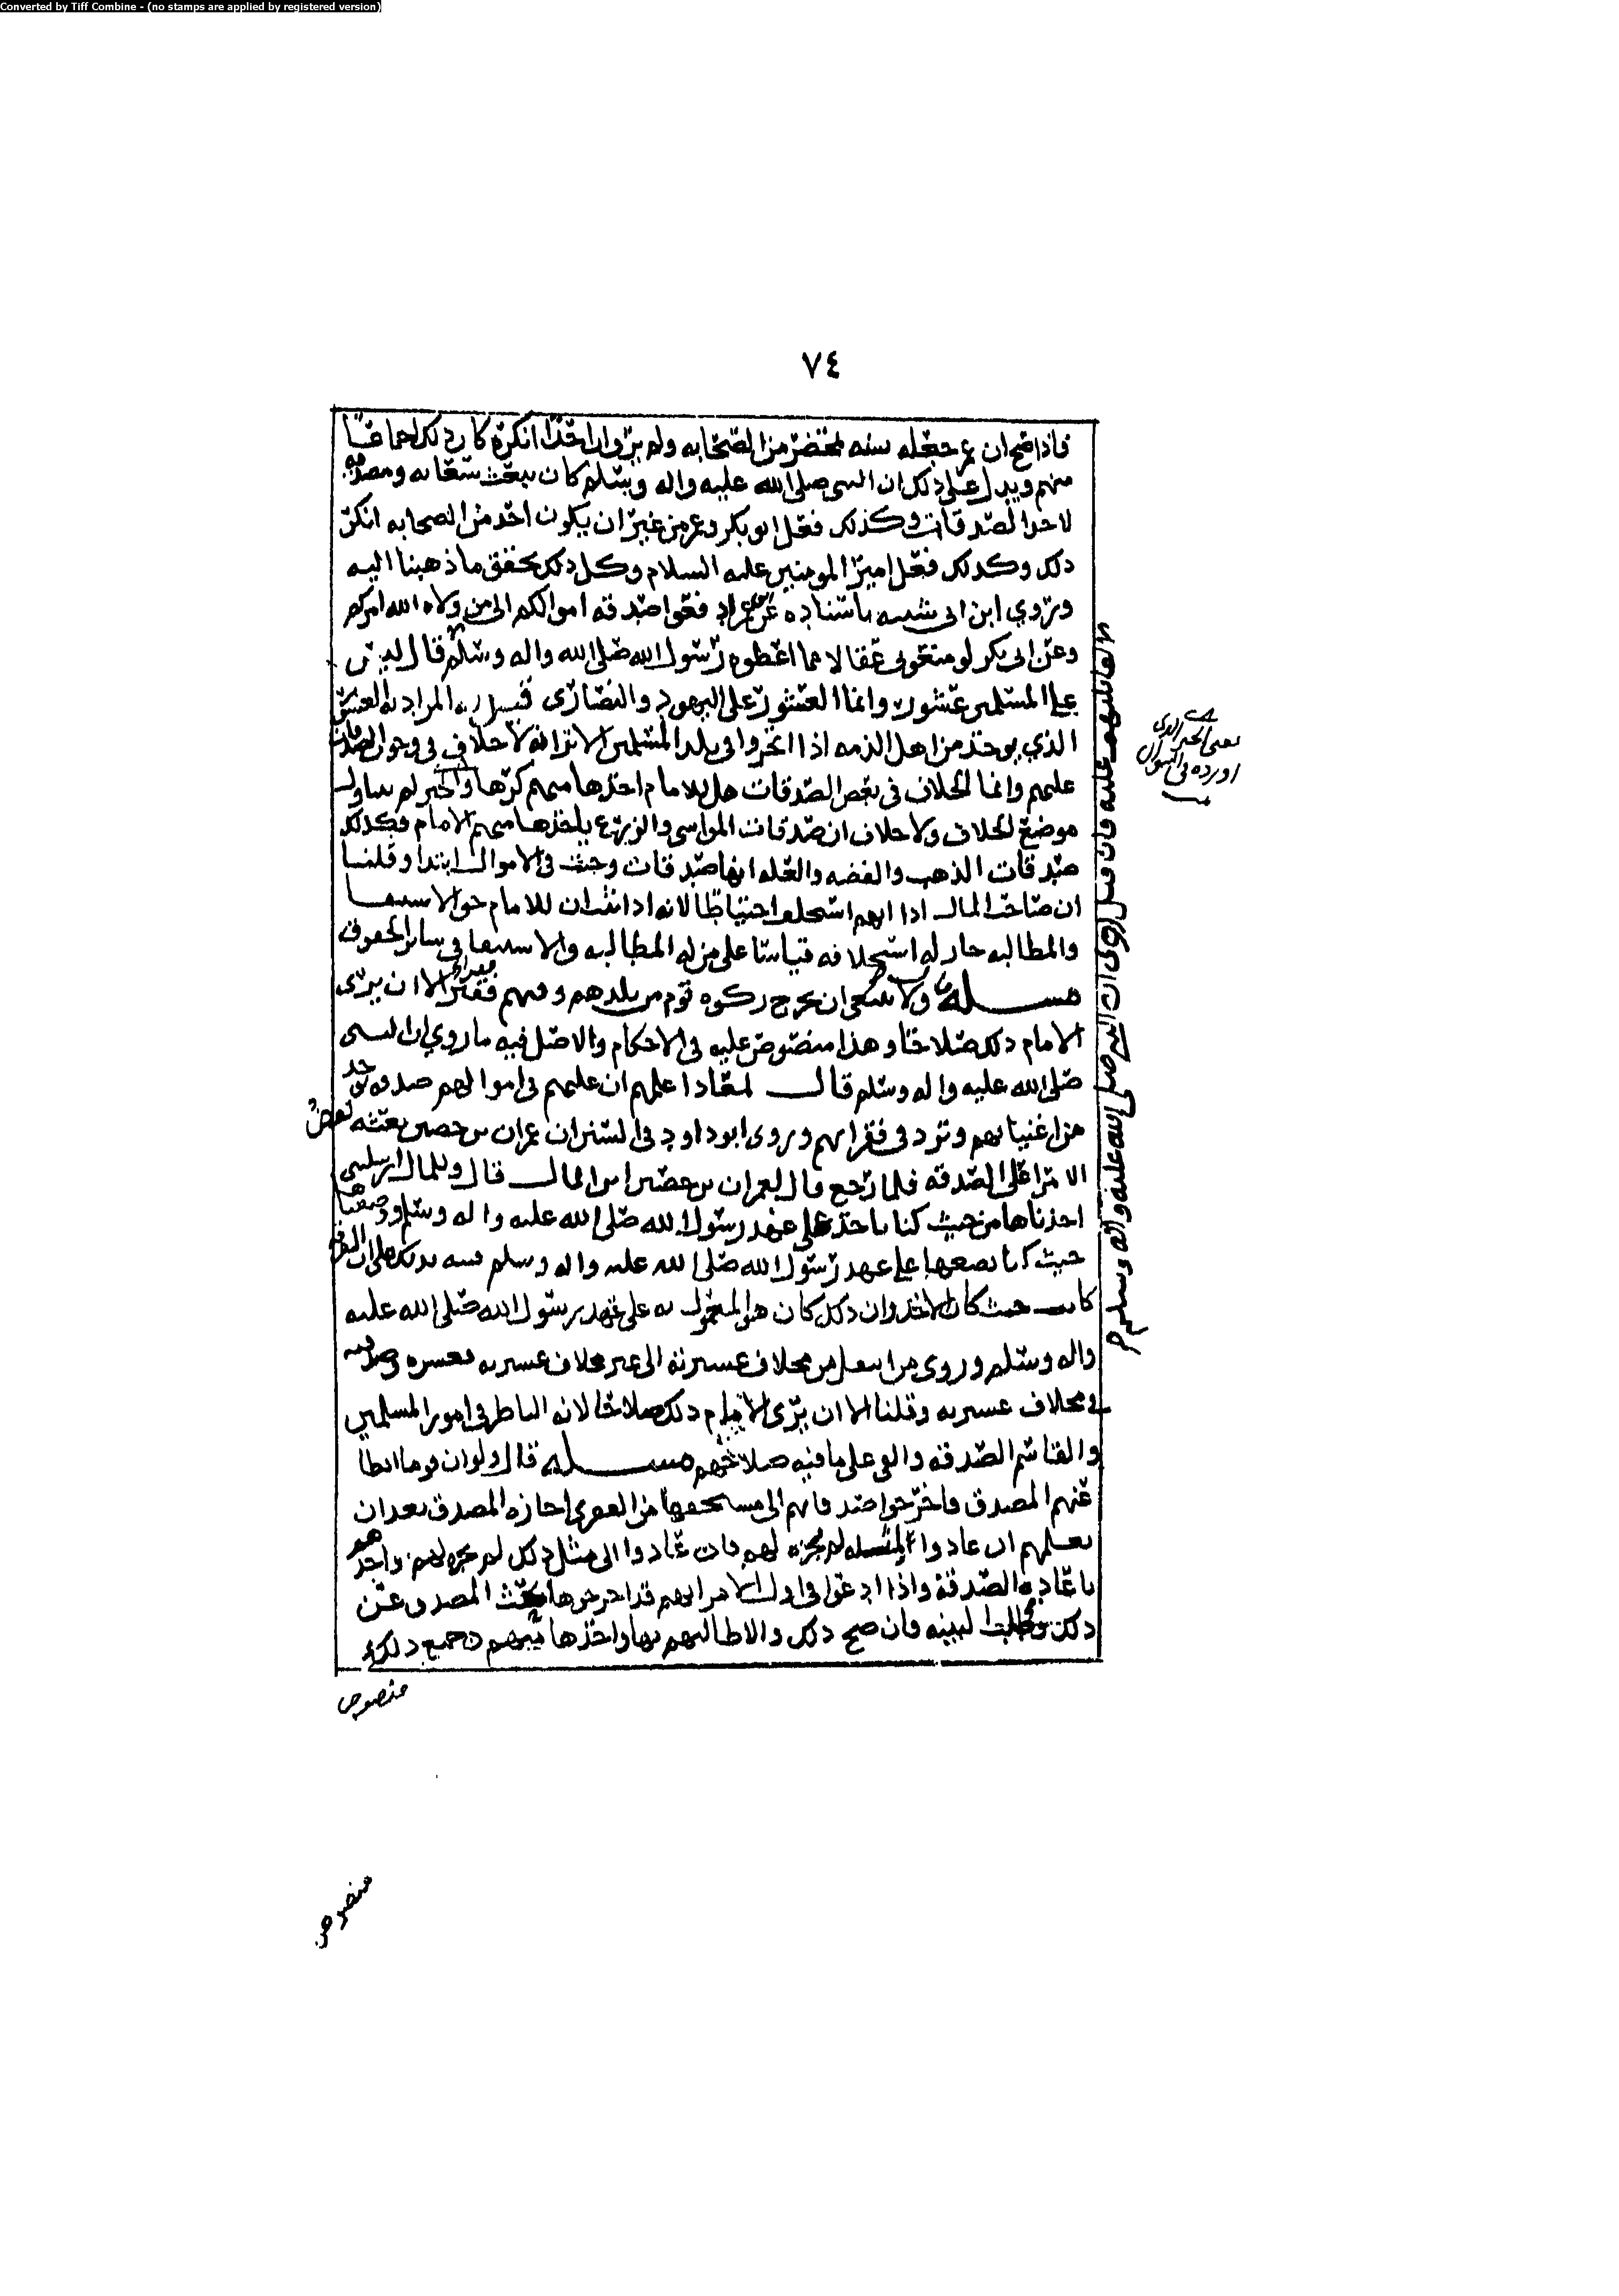 Converted by Tiff Combine - (no stamps are applied by registered version)
٧٤
فاذا صح ان عمر جعله سنه بمحضر من الصحابه ولم يرو ان احدا انكره كان ذلك اجماعا
منهم ويدل على ذلك ان النبي صلى الله عليه واله وسلم كان يبعث سعاته ومصدقيه
لاخذ الصدقات وكذلك فعل ابو بكر وعمر من غير ان يكون احد من الصحابه انكر
ذلك وكذلك فعل امير المومنين عليه السلام وكل ذلك يحقق ما ذهبنا اليه
وروي ابن ابي شيبه باسناده عن ابن عمر ادفعوا صدقه اموالكم الى من ولاه الله امركم
وعن ابي بكر لو منعوني عقالا مما اعطوه رسول الله صلى الله واله وسلم قال ليس
على المسلمين عشور وانما العشور على اليهود والنصارى قيل له المراد به العشر
الذي يوخذ من اهل الذمه اذا اتجروا في بلد المسلمين الا ترا انه لا خلاف في وجوب الصدقات
عليهم وانما الخلاف في بعض الصدقات هل للامام اخذها منهم كرها والخبر لم يتناول
موضع الخلاف ولا خلاف ان صدقات المواشي والزرع ياخذها منهم الامام فكذلك
صدقات الذهب والفضه والعله انها صدقات وجبت في الاموال ابتدا وقلنا
ان صاحب المال اذا اتهم استحلف احتياطا لانه اذا ثبت ان للامام حق الاستيفا
والمطالبه جاز له استحلافه قياسا على من له المطالبه والاستيفا في سائر الحقوق
مسله ولا ينبغي ان يخرج زكوه قوم من بلدهم وفيهم فقير الا ان يرى
الامام ذلك صلاحا وهذا منصوص عليه في الاحكام والاصل فيه ما روي ان النبي
صلى الله عليه واله وسلم قال لمعاد اعلمهم ان عليهم في اموالهم صدقه توخذ
من اغنيائهم وترد في فقرائهم وروى ابو داود في السنن ان عمران بن حصين بعثه بعض
الامرا على الصدقه فلما رجع قال لعمران بن حصين اين المال قال وللمال ارسلتني
اخذناها من حيث كنا ناخذ على عهد رسول الله صلى الله عليه واله وسلم ووضعناها
حيث كنا نضعها على عهد رسول الله صلى الله عليه واله وسلم فنبه بذلك على ان
كانت حيث كان الاخذ وان ذلك كان هو المعمول به على عهد رسول الله صلى الله عليه
واله وسلم وروى من انتقل من مخلاف عشيرته الى غير مخلاف عشيرته فعشره وصدقته
في مخلاف عشيرته وقلنا الا ان يرى الامام ذلك صلاحا لانه الناظر في امور المسلمين
والقاسم الصدقه والفي على ما فيه صلاحهم مسله قال ولو ان قوما ابطا
عنهم المصدق فاخرجوا صدقاتهم الى مستحقيها من الفقرى اجازه المصدق بعد ان
يعلمهم ان عادوا لمثله لم يجزه لهم فان عادوا الى مثل ذلك لم يجزه لهم واخذهم
باعاده الصدقه واذا ادعوا في اول الامر انهم قد اخرجوها بحث المصدق عن
ذلك وطلب البينه فان صح ذلك والا طالبهم بها واخذها منهم جميع ذلك
منصوص
يعني الخبر الذي
اورده في السؤال
عليه فان قيل روي ان النبي صلى الله عليه واله وسلم
منصوص